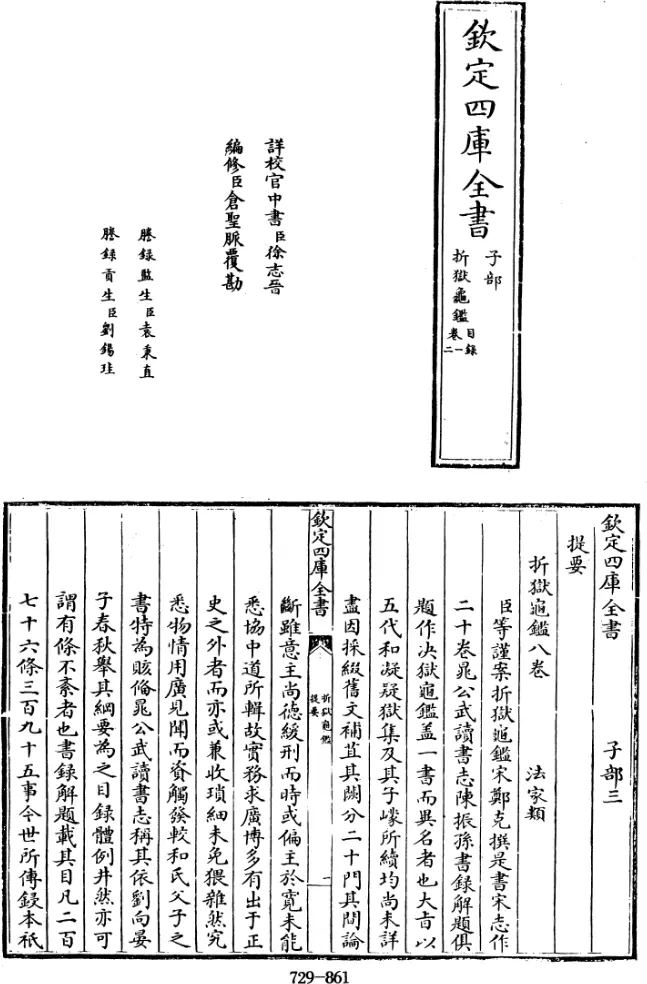 欽定四庫全書
子部
折獄龜鑑
目錄
卷一
二
詳校官中書臣徐志晉
編修臣倉聖脈覆勘
謄錄監生臣袁秉直
謄錄貢生臣劉錫珪
欽定四庫全書 子部三
提要
折獄龜鑑八卷 法家類
臣等謹案折獄龜鑑宋鄭克撰是書宋志作
二十卷晁公武讀書志陳振孫書錄解題俱
題作決獄龜鑑蓋一書而異名者也大旨以
五代和凝疑獄集及其子㠓所續均尚未詳
盡因採綴舊文補苴其闕分二十門其間論
欽定四庫全書
折獄龜鑑
提要
一
斷雖意主尚德緩刑而時或偏主於寬未能
悉協中道所輯故實務求廣博多有出于正
史之外者而亦或兼收瑣細未免猥雜然究
悉物情用廣見聞而資觸發較和氏父子之
書特為賅備晁公武讀書志稱其依劉向晏
子春秋舉其綱要為之目錄體例井然亦可
謂有條不紊者也書錄解題載其目凡二百
七十六條三百九十五事今世所傳錄本祇
729-861